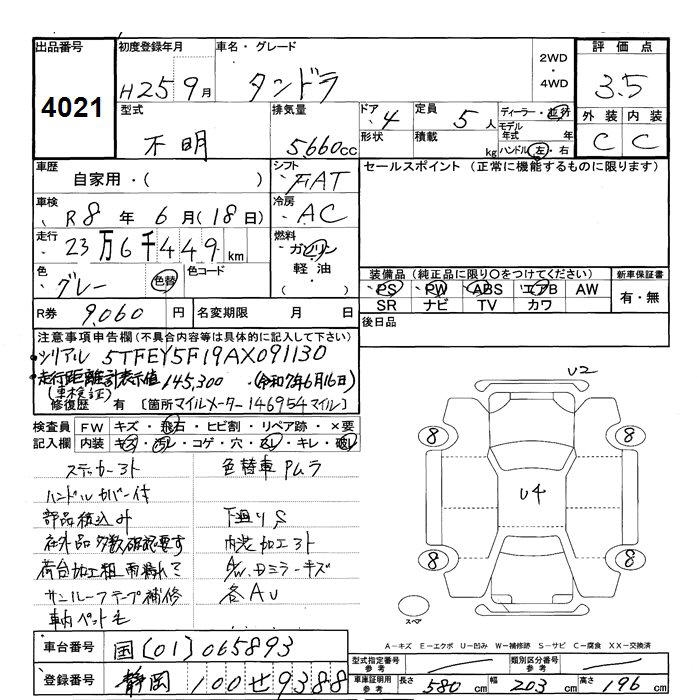 出品番号 初度登録年月 車名・グレード 2WD・4WD 評価点
4021 H25 9月 タンドラ 3.5
型式 排気量 ドア 4 定員 5人 ディーラー・並行 外装 内装
不明 5660cc 形状 積載 kg モデル年式 年 ハンドル 左・右 C C
車歴 シフト セールスポイント (正常に機能するものに限ります)
自家用・( ) FAT
車検 R8年 6月(18日) 冷房 AC
走行 23万6千449km 燃料 ガソリン・軽油・( )
色 グレー 色替 色コード 装備品(純正品に限り○をつけてください) 新車保証書
PS PW ABS エアB AW 有・無
SR ナビ TV カワ
R券 9,060円 名変期限 月 日 後日品
注意事項申告欄(不具合内容等は具体的に記入して下さい)
・シリアル 5TFEY5F19AX091130
・走行距離計表示値 145,300 (令和7年6月16日)
(車検証)
修復歴 有 [箇所マイルメーター146954マイル]
検査員 FW キズ・飛石・ヒビ割・リペア跡・×要
記入欄 内装 キズ・汚レ・コゲ・穴・スレ・キレ・破レ
ステッカー3ト 色替車 PMラ
ハンドルカバー付
部品積込み 下廻りS
社外品多数確認要す 内装加工3ト
荷台加工粗 雨漏れて A/W、Dミラーキズ
サンルーフテープ補修 各AU
車内ペット毛
U2
8 8
U4
8 8
スペア
A-キズ E-エクボ U-凹み W-補修跡 S-サビ C-腐食 XX-交換済
車台番号 国[01]065893 型式指定番号 参考 類別区分番号 参考
登録番号 静岡 100せ9388 車庫証明用 参考 長さ 580cm 幅 203cm 高さ 196cm